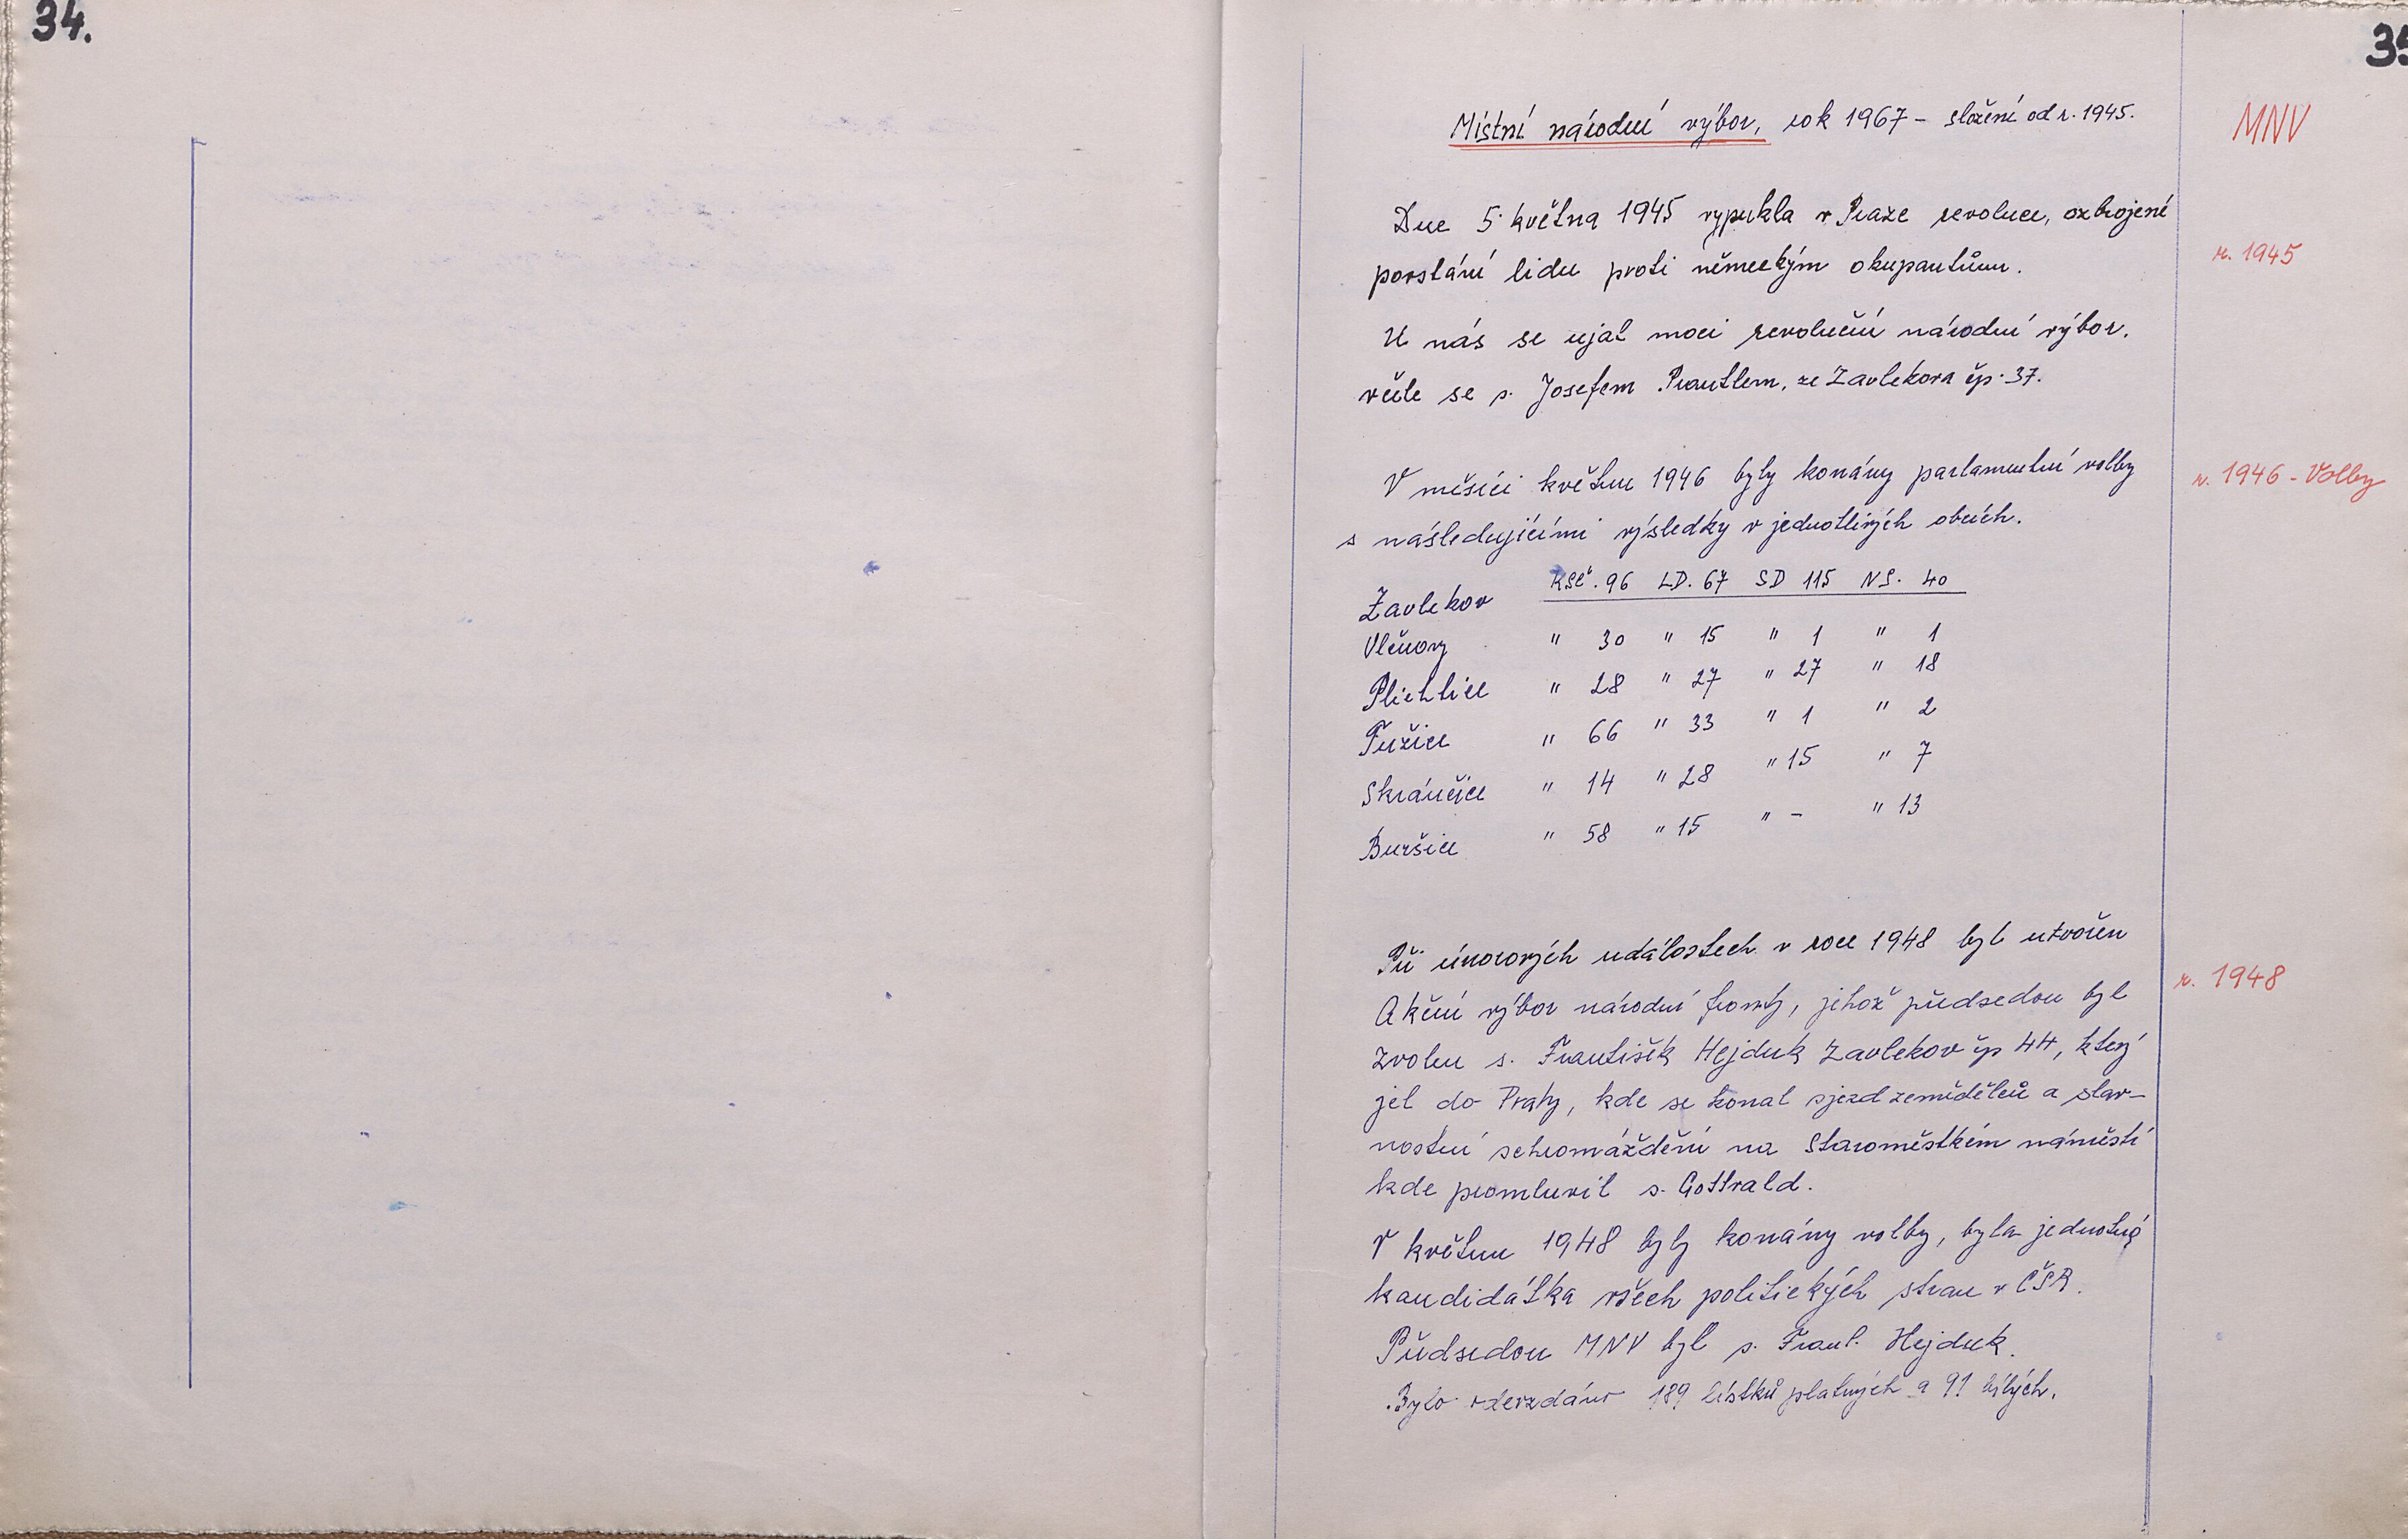 34.
35
Místní národní výbor, rok 1967 - složení od r. 1945.
MNV
Dne 5. května 1945 vypukla v Praze revoluce, ozbrojené
r. 1945
povstání lidu proti německým okupantům.
U nás se ujal moci revoluční národní výbor.
včele se s. Josefem Prantlem, ze Zavlekova čp. 37.
V měsíci květnu 1946 byly konány parlamentní volby
r. 1946 - Volby
s následujícími výsledky v jednotlivých obcích.
Zavlekov KSČ. 96 LD. 67 SD 115 NS. 40
Vlčnovy " 30 " 15 " 1 " 1
Plichtice " 28 " 27 " 27 " 18
Tužice " 66 " 33 " 1 " 2
Skránčice " 14 " 28 " 15 " 7
Buršice " 58 " 15 " - " 13
Při únorových událostech v roce 1948 byl utvořen
r. 1948
Akční výbor národní fronty, jehož předsedou byl
zvolen s. František Hejduk Zavlekov čp 44, který
jel do Prahy, kde se konal sjezd zemědělců a slav-
nostní schromáždění na Staroměstkém náměstí
kde promluvil s. Gottvald.
V květnu 1948 byly konány volby, byla jednotná
kandidátka všech politických stran v ČSR.
Předsedou MNV byl s. Frant. Hejduk.
Bylo odevzdáno 189 lístků platných a 91 bílých.